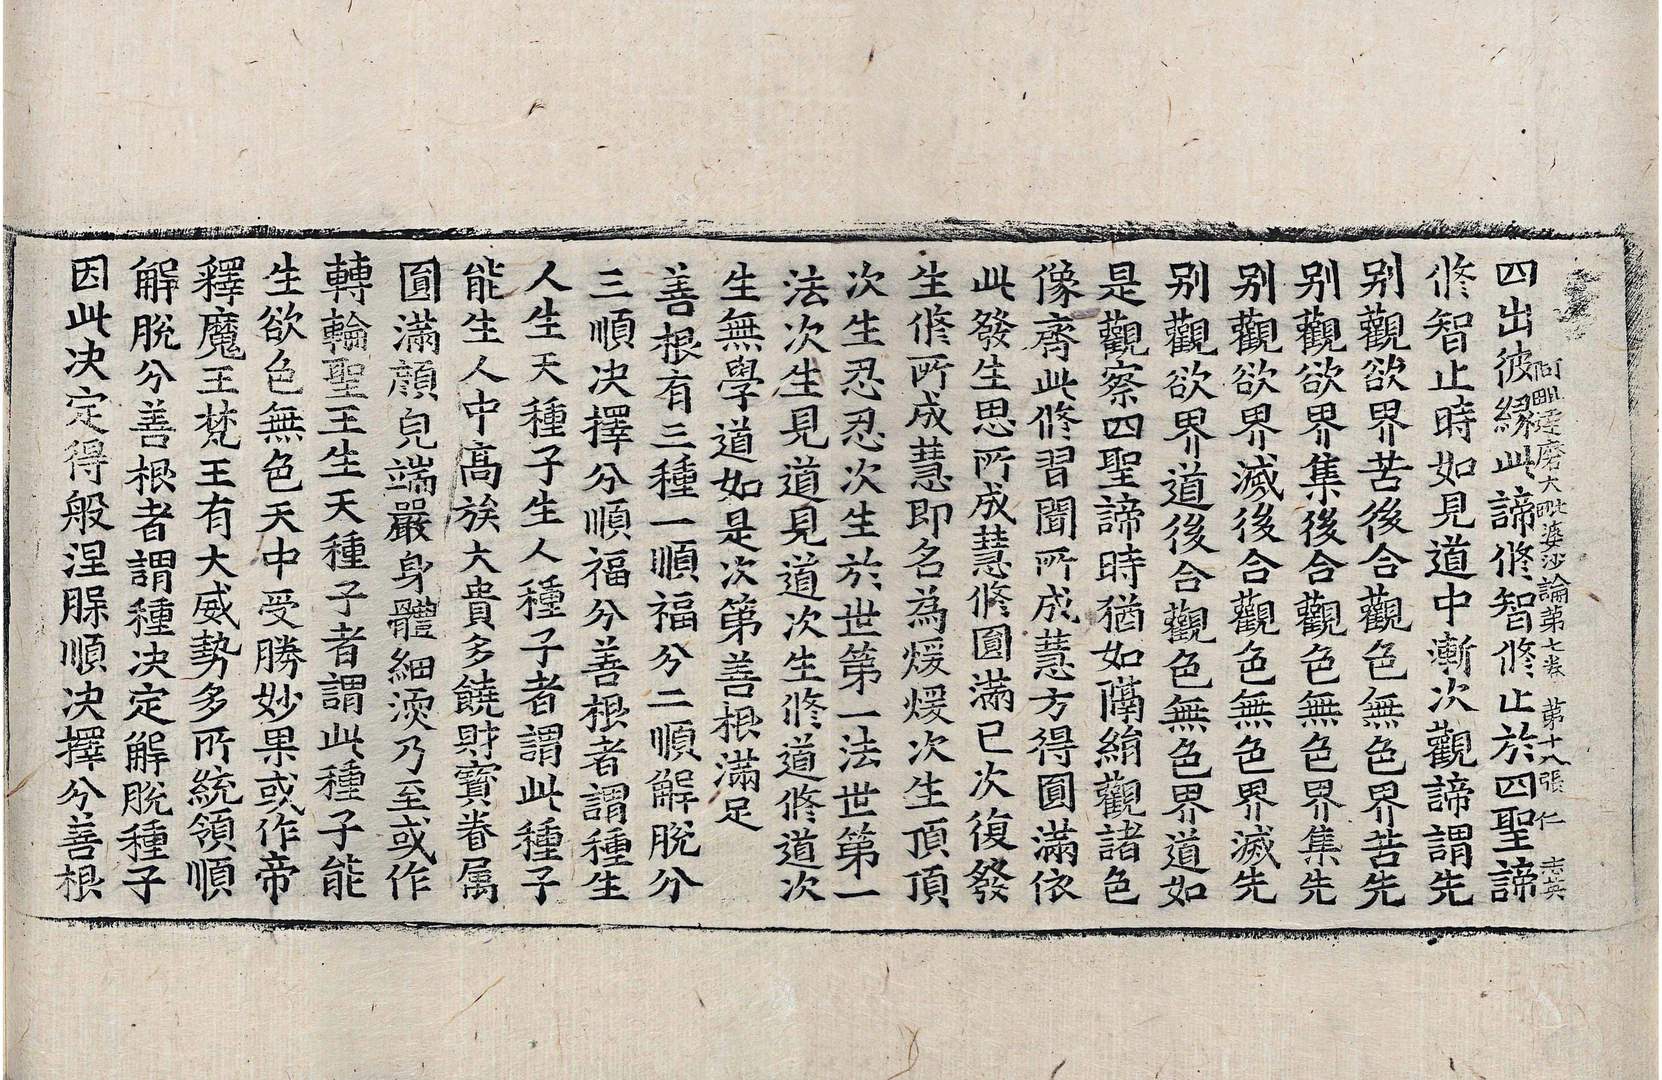 阿毗達磨大毗婆沙論第七卷 第十八張 仁 志英
四出彼緣此諦修智修止於四聖諦
修智止時如見道中漸次觀諦謂先
别觀欲界苦後合觀色無色界苦先
别觀欲界集後合觀色無色界集先
别觀欲界滅後合觀色無色界滅先
别觀欲界道後合觀色無色界道如
是觀察四聖諦時猶如隔絹觀諸色
像齊此修習聞所成慧方得圓滿依
此發生思所成慧修圓滿已次復發
生修所成慧即名為煖煖次生頂頂
次生忍忍次生於世第一法世第一
法次生見道見道次生修道修道次
生無學道如是次第善根滿足
善根有三種一順福分二順解脫分
三順决擇分順福分善根者謂種生
人生天種子生人種子者謂此種子
能生人中高族大貴多饒財寶眷属
圓滿顔皃端嚴身體細渜乃至或作
轉輪聖王生天種子者謂此種子能
生欲色無色天中受勝妙果或作帝
釋魔王梵王有大威勢多所統領順
解脫分善根者謂種决定解脫種子
因此决定得般涅槃順决擇分善根